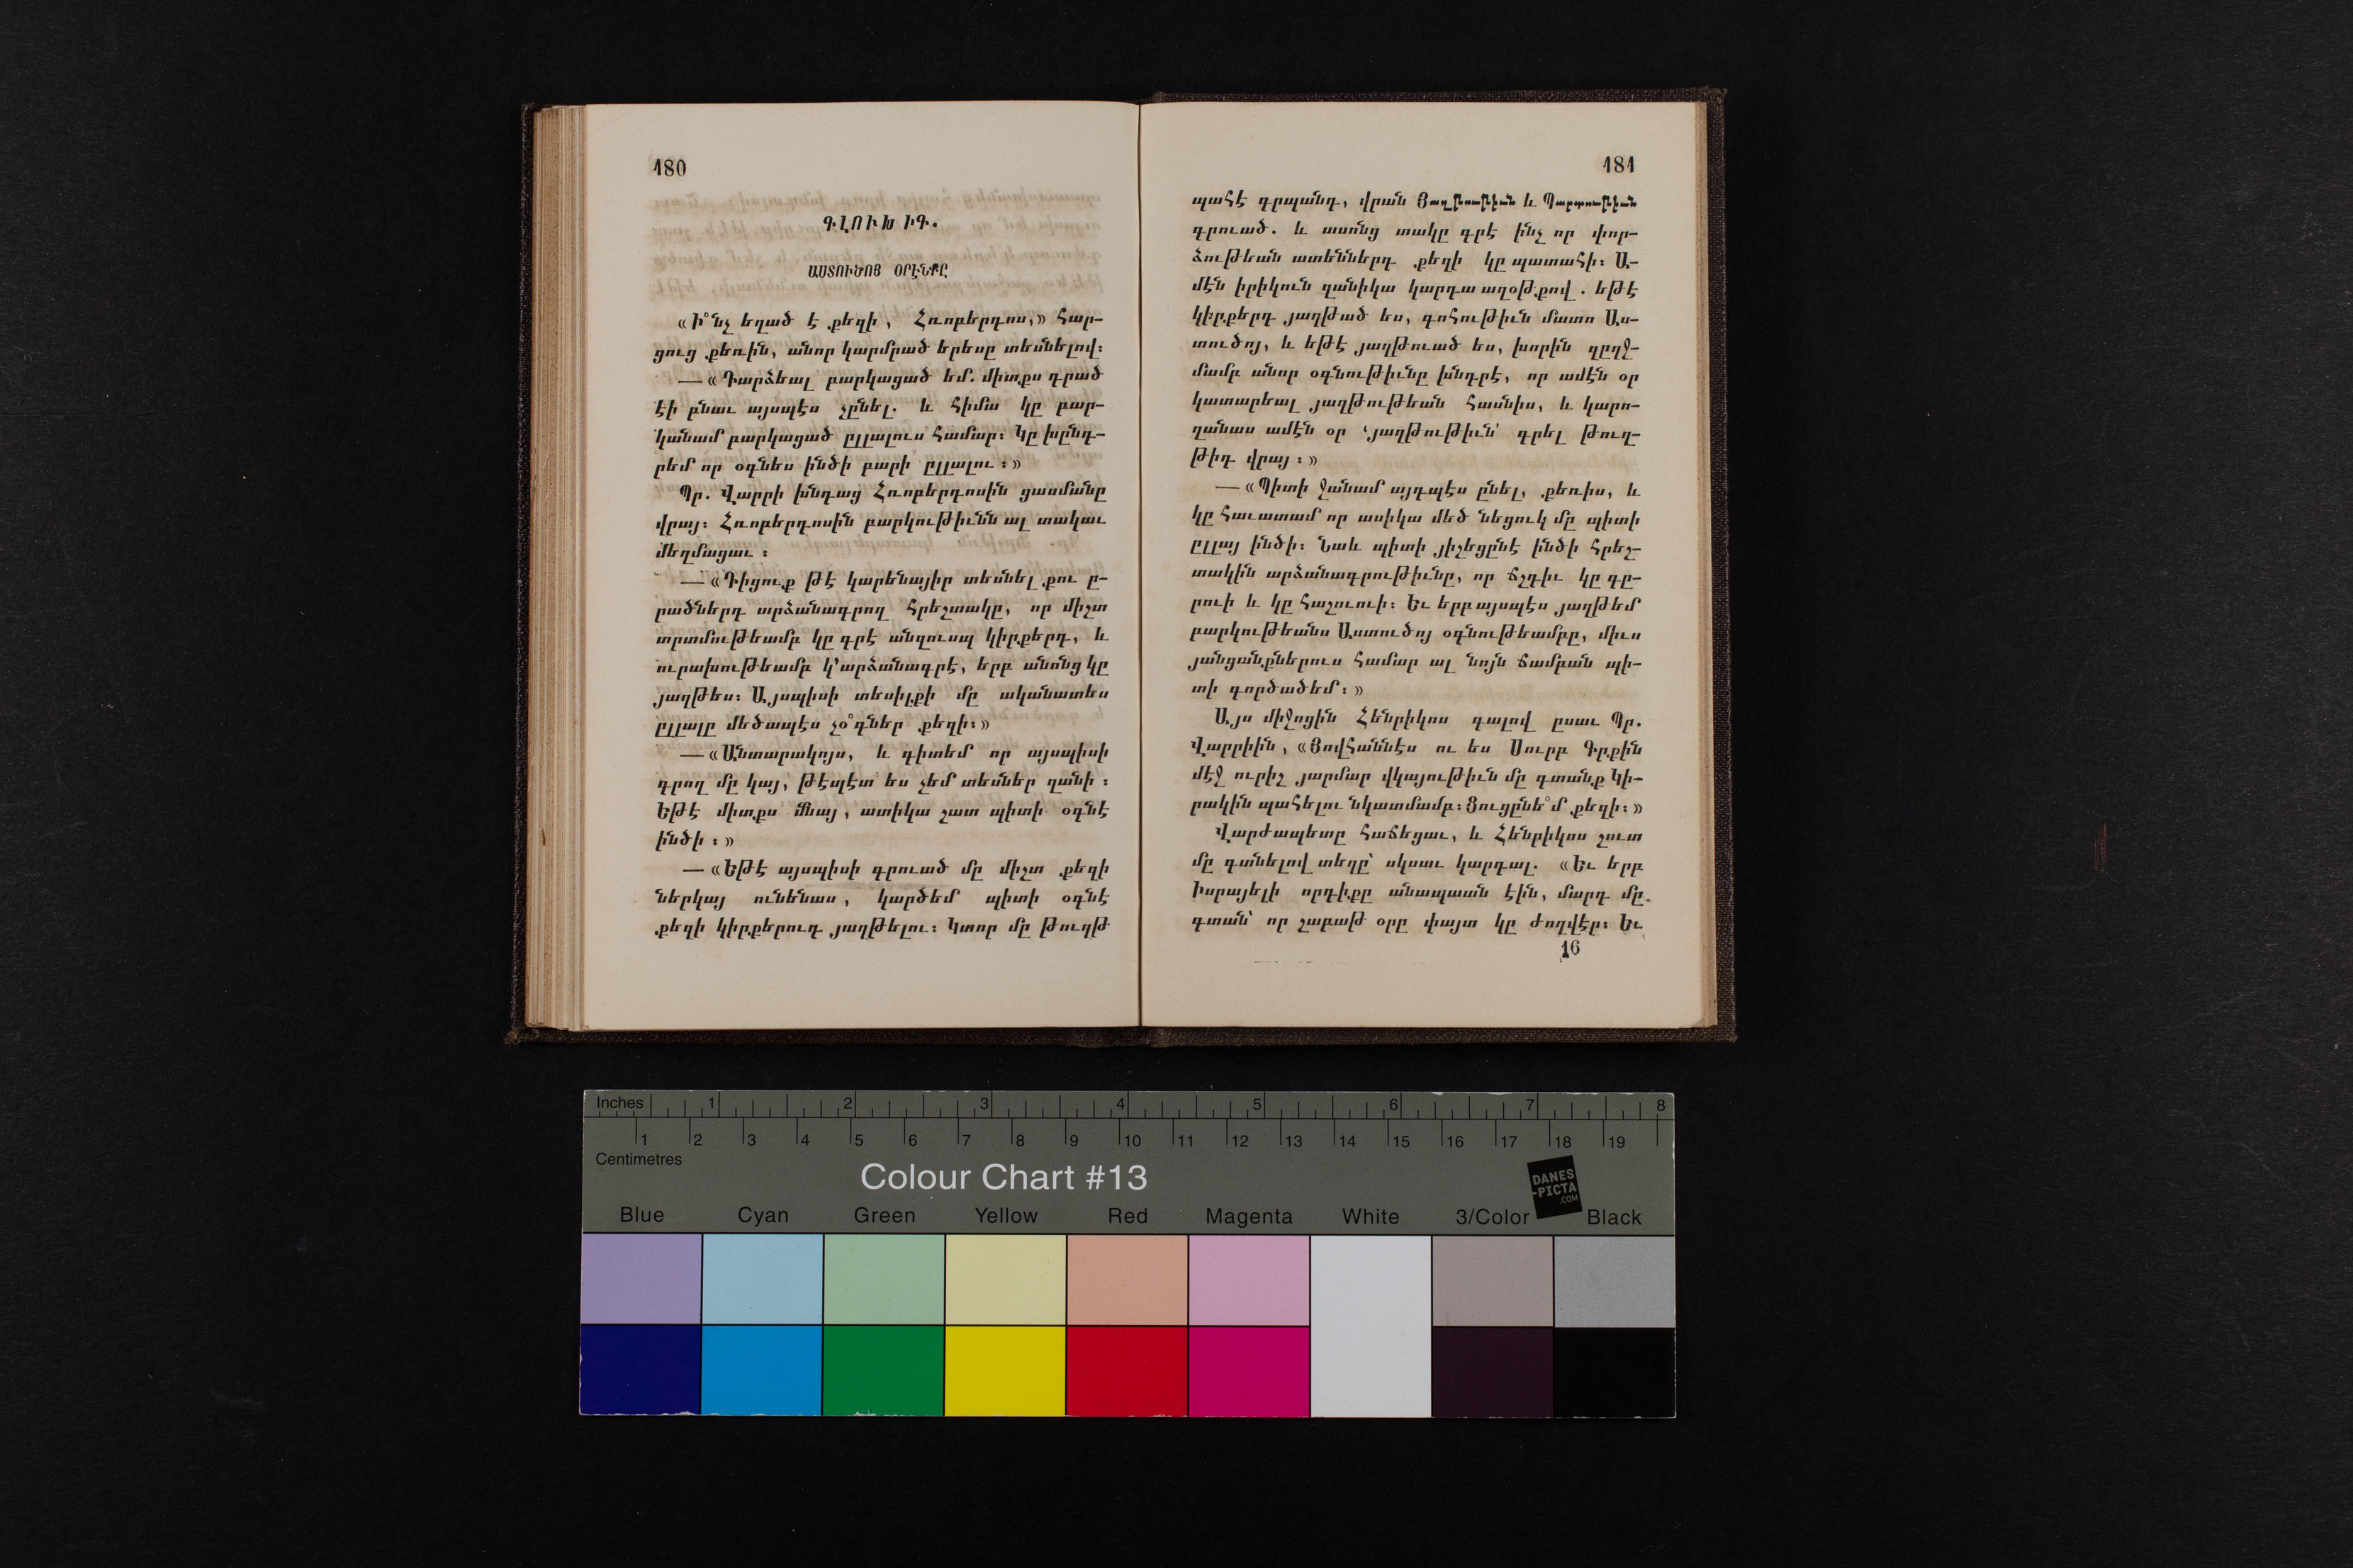 180
ԳԼՈՒԽ ԻԳ.
ԱՍՏՈՒԾՈՅ ՕՐԷՆՔԸ
«Ի՞նչ եղած է քեզի, Հռոբերդոս,» հար-
ցուց քեռին, անոր կարմրած երեսը տեսնելով։
—«Դարձեալ բարկացած եմ. միտքս դրած
էի բնաւ այսպէս չընել. և հիմա կը բար-
կանամ բարկացած ըլլալուս համար։ Կը խընդ-
րեմ որ օգնես ինծի բարի ըլլալու։»
Պր. Վարրի խնդաց Հռոբերդոսին ցասմանը
վրայ։ Հռոբերդոսին բարկութիւնն ալ տակաւ
մեղմացաւ։
—«Դիցուք թէ կարենայիր տեսնել քու ը-
րածներդ արձանագրող հրեշտակը, որ միշտ
տրտմութեամբ կը գրէ անզուսպ կիրքերդ, և
ուրախութեամբ կ՚արձանագրէ, երբ անոնց կը
յաղթես։ Այսպիսի տեսիլքի մը ականատես
ըլլալը մեծապէս չօ՞գներ քեզի։»
—«Անտարակոյս, և գիտեմ որ այսպիսի
գրող մը կայ, թէպէտ ես չեմ տեսներ զանի։
Եթէ միտքս մնայ, ատիկա շատ պիտի օգնէ
ինծի։»
—«Եթէ այսպիսի գրուած մը միշտ քեզի
ներկայ ունենաս, կարծեմ պիտի օգնէ
քեզի կիրքերուդ յաղթելու։ Կտոր մը թուղթ
181
պահէ գրպանդ, վրան Յաղթութիւն և Պարտութիւն
գրուած. և ասոնց տակը գրէ ինչ որ փոր-
ձութեան ատեններդ քեզի կը պատահի։ Ա-
մէն իրիկուն զանիկա կարդա աղօթքով. եթէ
կիրքերդ յաղթած ես, գոհութիւն մատո Աս-
տուծոյ, և եթէ յաղթուած ես, խորին զըղջ-
մամբ անոր օգնութիւնը խնդրէ, որ ամէն օր
կատարեալ յաղթութեան հասնիս, և կարո-
ղանաս ամէն օր ‘յաղթութիւն’ գրել թուղ-
թիդ վրայ։»
—«Պիտի ջանամ այդպէս ընել, քեռիս, և
կը հաւատամ որ ասիկա մեծ նեցուկ մը պիտի
ըլլայ ինծի։ Նաև պիտի յիշեցընէ ինծի հրեշ-
տակին արձանագրութիւնը, որ ճշդիւ կը գը-
րուի և կը հաշուուի։ Եւ երբ այսպէս յաղթեմ
բարկութեանս Աստուծոյ օգնութեամբը, միւս
յանցանքներուս համար ալ նոյն ճամբան պի-
տի գործածեմ։»
Այս միջոցին Հենրիկոս գալով ըսաւ Պր.
Վարրիին, «Յովհաննէս ու ես Սուրբ Գրքին
մէջ ուրիշ յարմար վկայութիւն մը գտանք Կի-
րակին պահելու նկատմամբ։ Ցուցընե՞մ քեզի։»
Վարժապետը հաճեցաւ, և Հենրիկոս շուտ
մը գտնելով տեղը՝ սկսաւ կարդալ. «Եւ երբ
Իսրայելի որդիքը անապատն էին, մարդ մը
գտան՝ որ շաբաթ օրը փայտ կը ժողվէր։ Եւ
16
Inches 1 2 3 4 5 6 7 8
1 2 3 4 5 6 7 8 9 10 11 12 13 14 15 16 17 18 19
Centimetres
Colour Chart #13
DANES
-PICTA
.COM
Blue Cyan Green Yellow Red Magenta White 3/Color Black